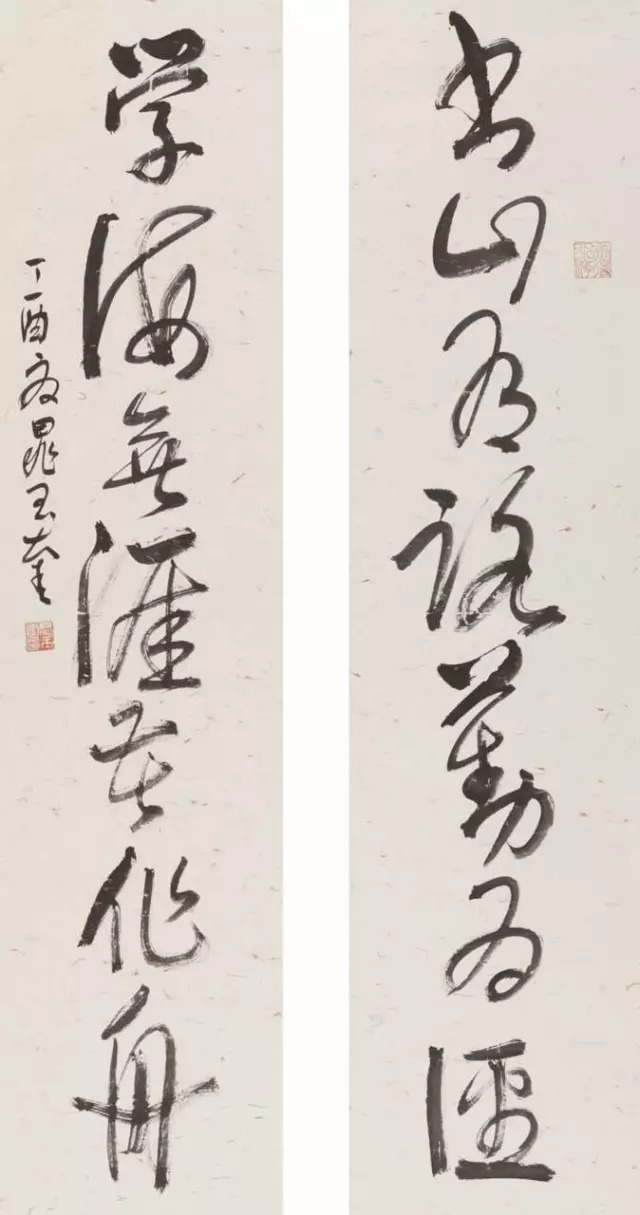 书山有路勤为徑
学海無涯苦作舟
丁酉夏晁玉奎